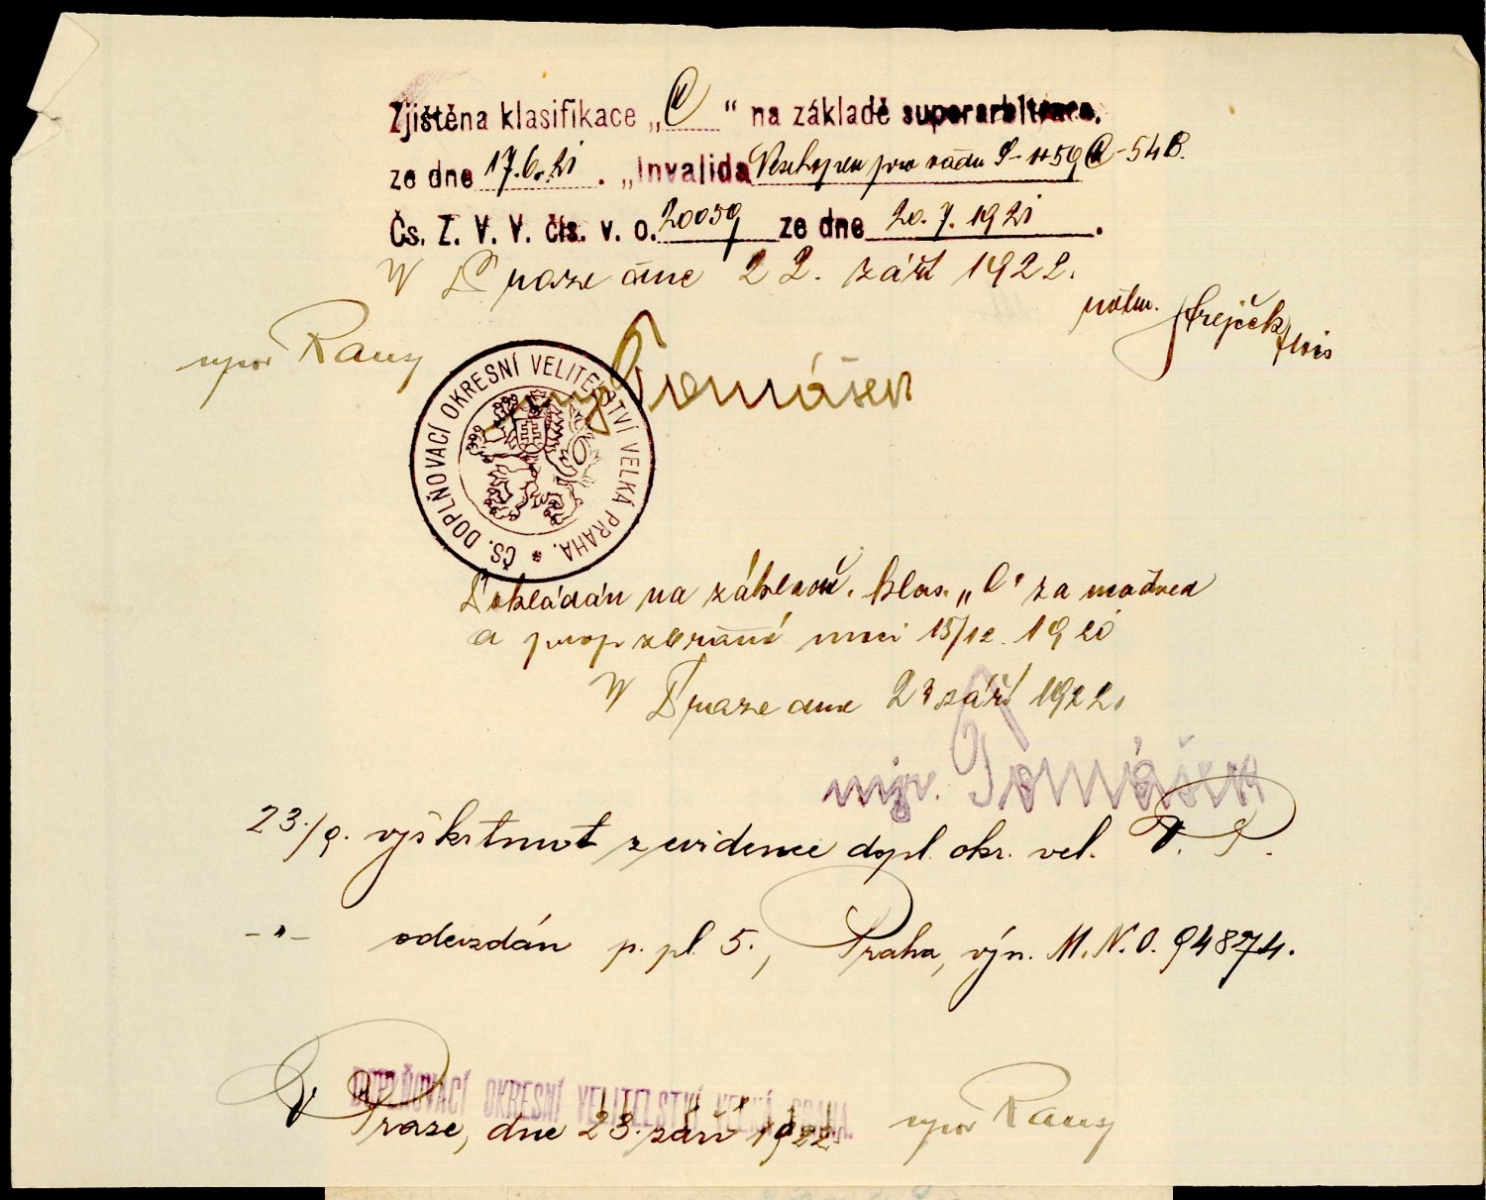 Zjištěna klasifikace „C“ na základě superarbitrace.
ze dne 17.6.21 . „Invalida Neschopen pro
Čs. Z. V. V. čís. v. o. 20059 ze dne 20.7.1921 .
V Praze dne 22. září 1922.
Tomášek
ČS. DOPLŇOVACÍ OKRESNÍ VELITELSTVÍ VELKÁ PRAHA. *
na klas. „C“ za
a 15/12. 1920
V Praze dne 23 září 1922.
mjr. Tomášek
23./9. vyškrtnut z evidence dopl. okr. vel. V. P.
-"- odevzdán p. pl. 5., Praha, výn. M.N.O. 94874.
DOPLŇOVACÍ OKRESNÍ VELITELSTVÍ VELKÁ PRAHA.
V Praze, dne 23. září 1922.